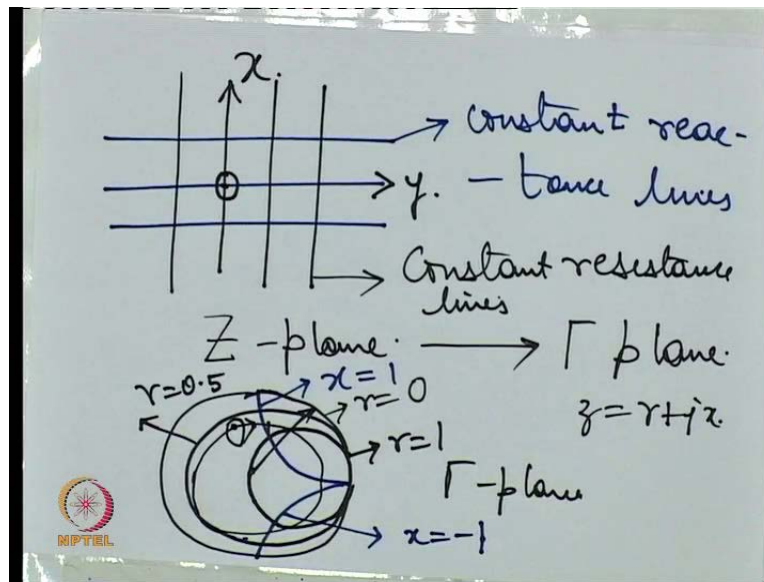 x.
constant reac-
y. - tance lines
Constant resistance
lines
Z-plane. → Γ plane.
r=0.5
x=1
r=0
z=r+jx.
r=1
Γ-plane
x=-1
NPTEL